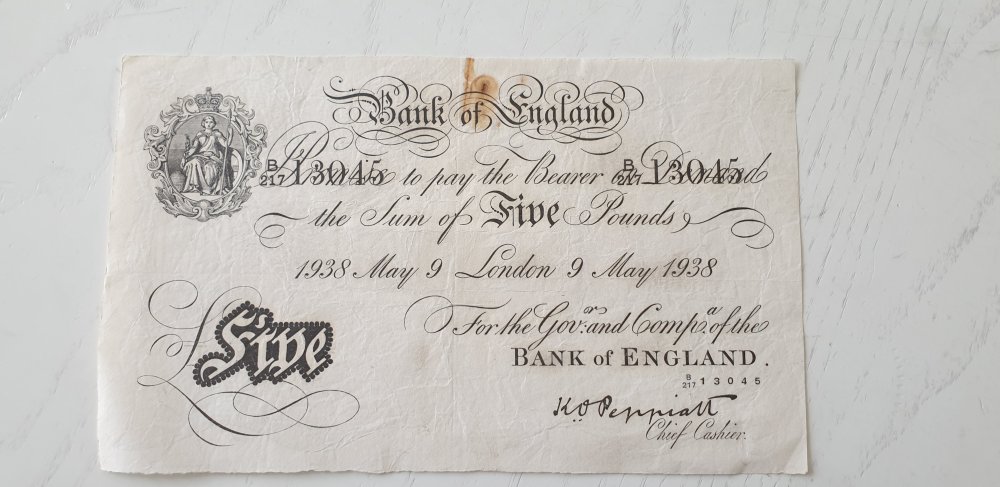 Bank of England
B/217 13045 B/217 13045
I Promise to pay the Bearer on Demand
the Sum of Five Pounds
1938 May 9 London 9 May 1938
For the Govr. and Compa. of the
BANK of ENGLAND.
B/217 13045
£Five
K O Peppiatt
Chief Cashier.